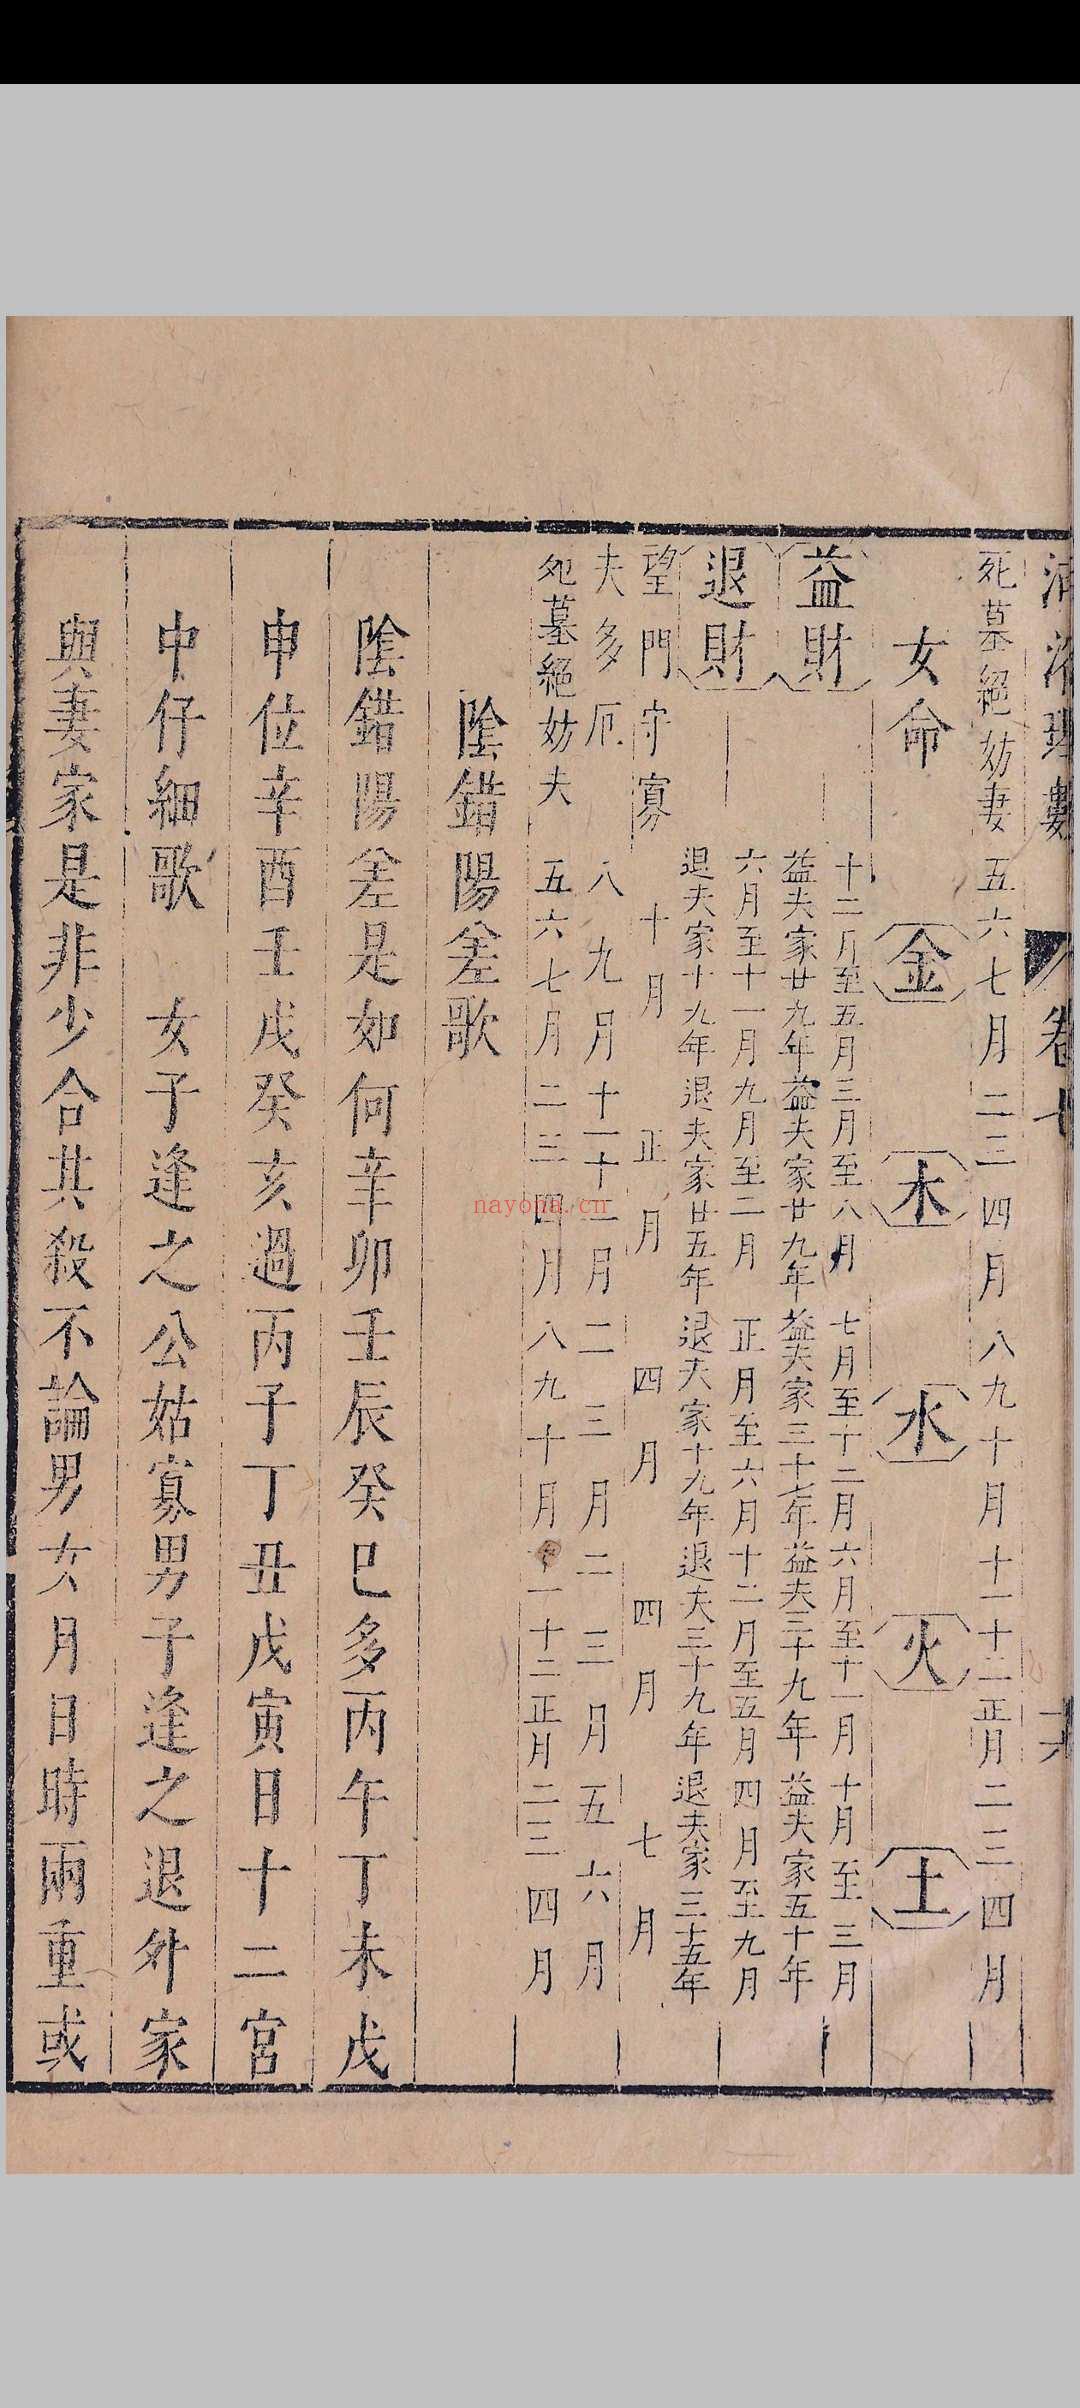 卷七
死墓絕妨妻 五六七月 二三四月 八九十月 十一十二正月 二三四月
女命 金 木 水 火 土
益財
十二月至五月 三月至八月 七月至十二月 六月至十一月 十月至三月
益夫家廿九年 益夫家廿九年 益夫家三十七年 益夫三十九年 益夫家五十年
退財
六月至十一月 九月至二月 正月至六月 十二月至五月 四月至九月
退夫家十九年 退夫家廿五年 退夫家十九年 退夫三十九年 退夫家三十五年
望門守寡 十月 正月 四月 四月 七月
夫多厄 八九月 十一十二月 二三月 二三月 五六月
死墓絕妨夫 五六七月 二三四月 八九十月 十一十二正月 二三四月
陰錯陽差歌
陰錯陽差是如何辛卯壬辰癸巳多丙午丁未戊
申位辛酉壬戌癸亥過丙子丁丑戊寅日十二宮
中仔細歌 女子逢之公姑寡男子逢之退外家
與妻家是非少合其殺不論男女月日時兩重或
nayona.cn